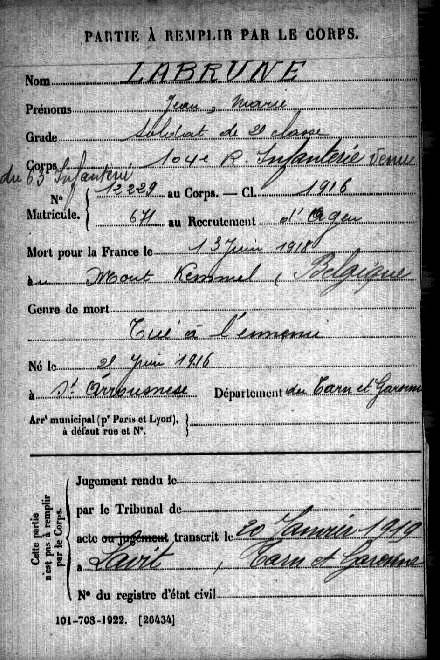 PARTIE À REMPLIR PAR LE CORPS.
Nom LABRUNE
Prénoms Jean, Marie
Grade Soldat de 2e classe
Corps 104e R. Infanterie venu
du 63 Infanterie
N° 12229 au Corps. — Cl. 1916
Matricule. 671 au Recrutement d'Agen
Mort pour la France le 13 Juin 1918
au Mont Kemmel, Belgique
Genre de mort
Tué à l'ennemi
Né le Juin 1916
à St Département du Tarn et Garonne
Arrt municipal (pr Paris et Lyon),
à défaut rue et N°.
Cette partie
n'est pas à remplir
par le Corps.
Jugement rendu le
par le Tribunal de
acte ou jugement transcrit le 20 Janvier 1919
à Lavit, Tarn et Garonne
N° du registre d'état civil
101-708-1922. [26434]